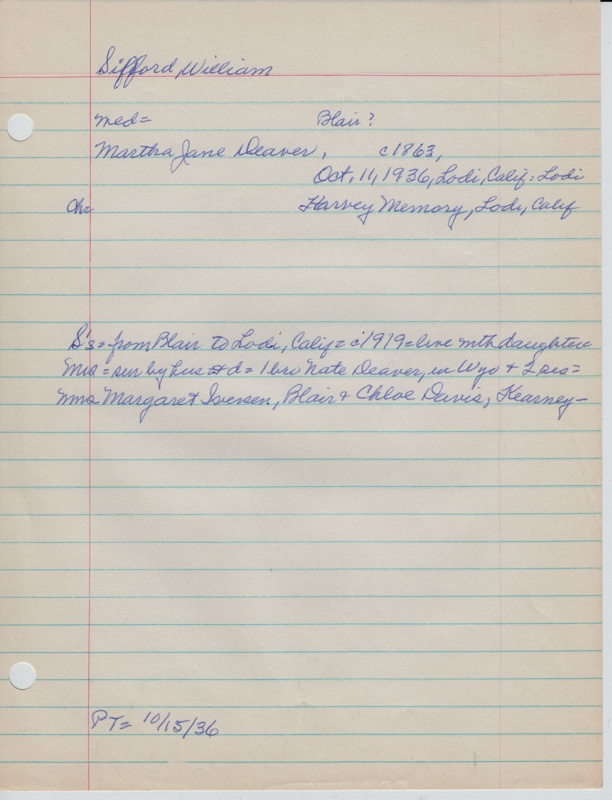 Sifford William
med= Blair?
Martha Jane Deaver, c1863,
Oct. 11, 1936, Lodi, Calif= Lodi
Ch= Harvey Memory, Lodi, Calif
S's= from Blair to Lodi, Calif= c1919= live with daughter=
Mrs= sur by hus & d= 1 bro Nate Deaver, in Wyo & 2 sis=
Mrs Margaret Iversen, Blair & Chloe Davis, Kearney-
PT= 10/15/36